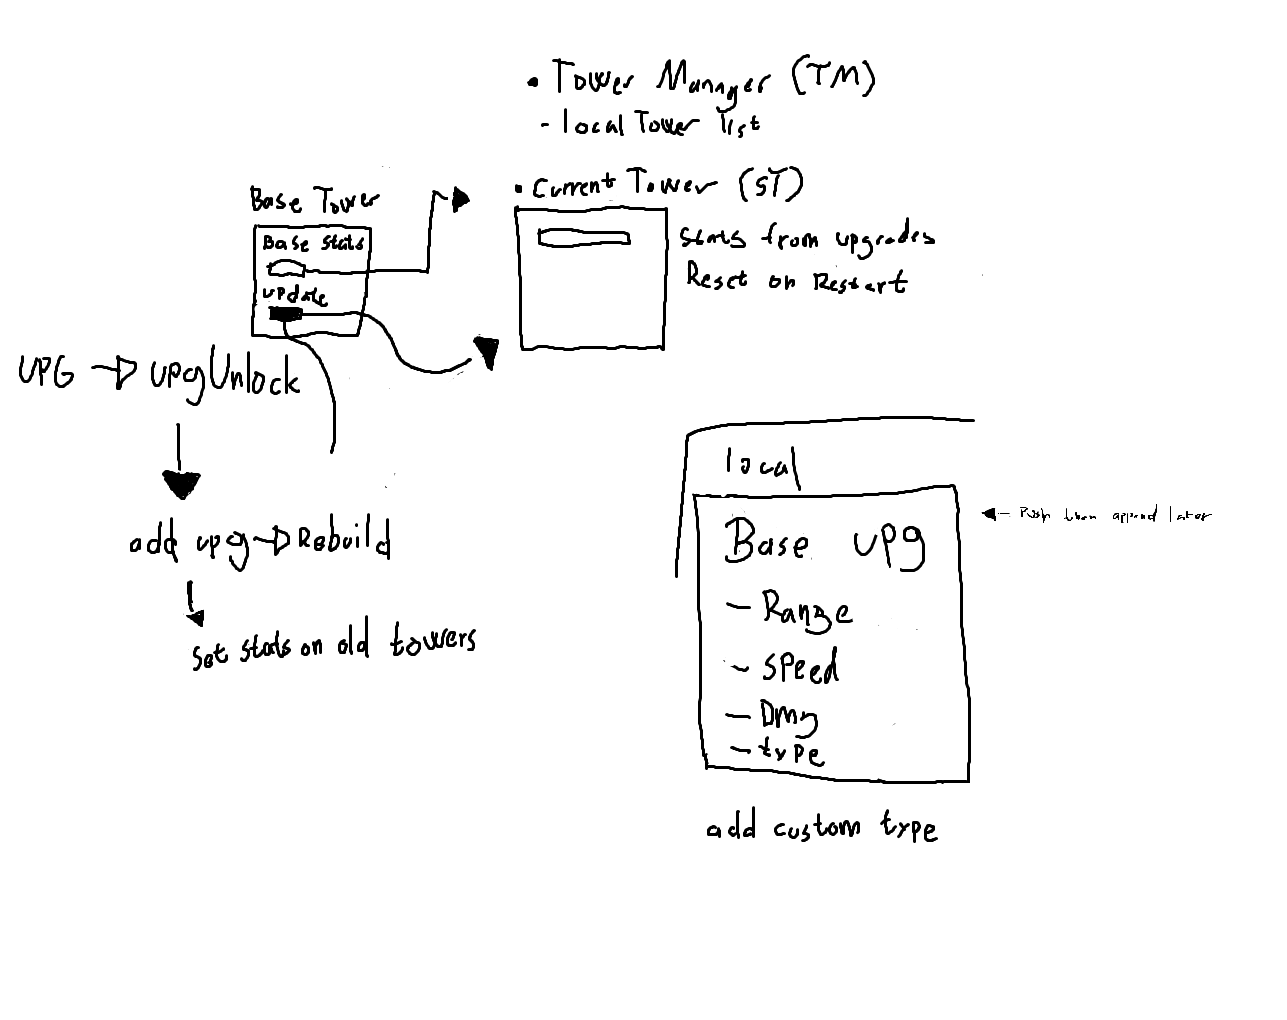 • Tower Manager (TM)
- local Tower List
Base Tower
• Current Tower (ST)
Base Stats
update
Stats from upgrades
Reset on Restart
UPG → upgUnlock
add upg → Rebuild
Set stats on old towers
local
Base upg
- Range
- Speed
- Dmg
- type
← Push then append later
add custom type